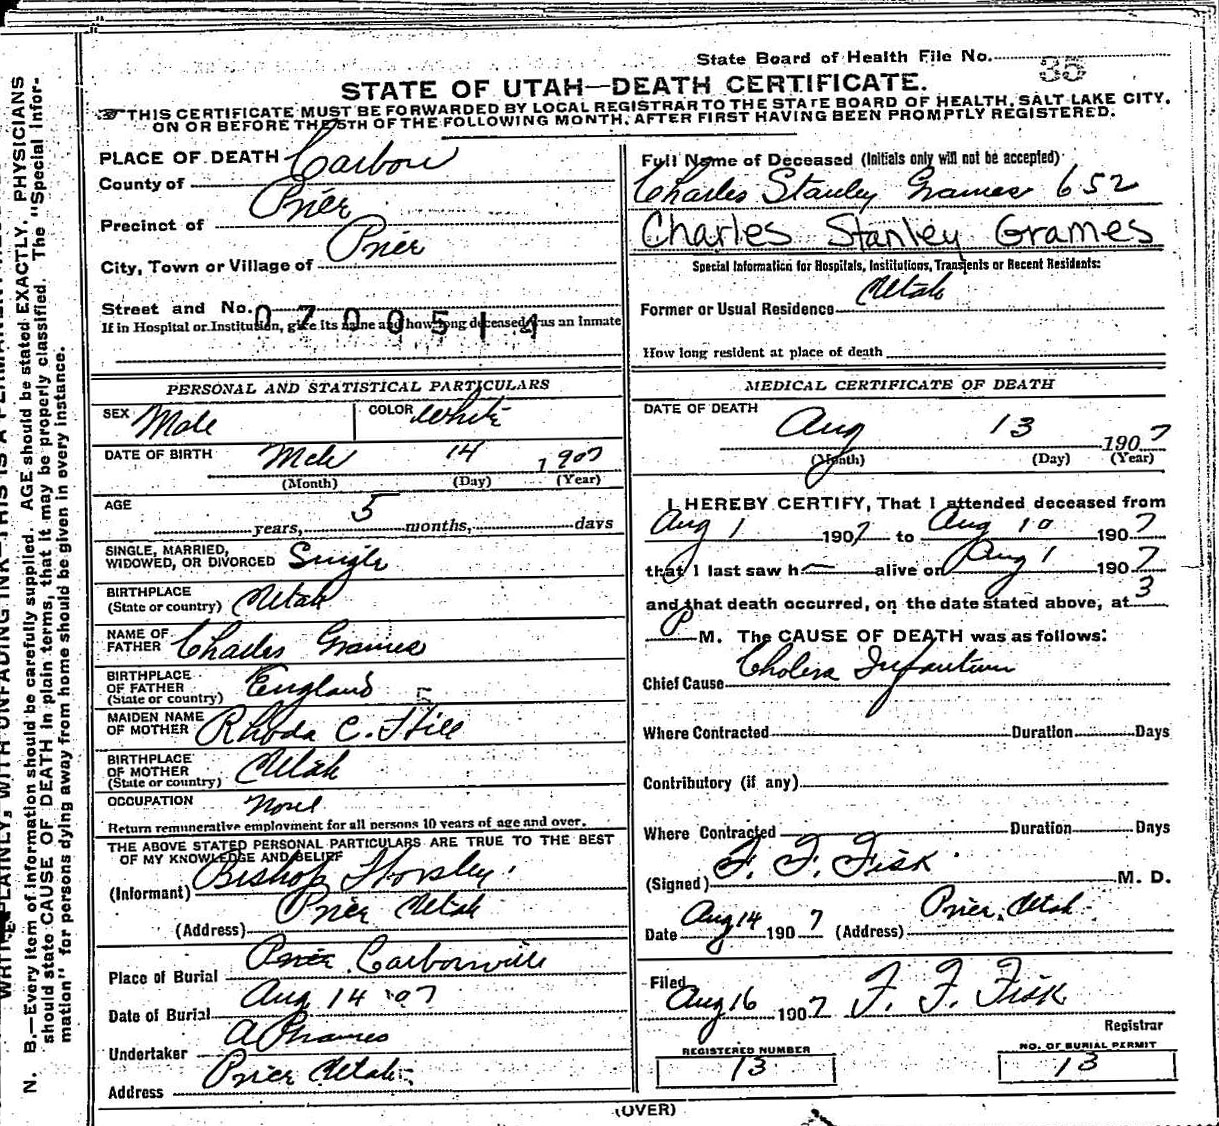 State Board of Health File No. 35
STATE OF UTAH—DEATH CERTIFICATE.
THIS CERTIFICATE MUST BE FORWARDED BY LOCAL REGISTRAR TO THE STATE BOARD OF HEALTH, SALT LAKE CITY,
ON OR BEFORE THE 5TH OF THE FOLLOWING MONTH, AFTER FIRST HAVING BEEN PROMPTLY REGISTERED.
PLACE OF DEATH
County of Carbon
Precinct of Price
City, Town or Village of Price
Street and No.
0700514
If in Hospital or Institution, give its name and how long deceased was an Inmate
Full Name of Deceased (Initials only will not be accepted)
Charles Stanley Grames 652
Charles Stanley Grames
Special Information for Hospitals, Institutions, Transients or Recent Residents:
Former or Usual Residence Utah
How long resident at place of death
PERSONAL AND STATISTICAL PARTICULARS
SEX Male COLOR White
DATE OF BIRTH Mch 14 1907
(Month) (Day) (Year)
AGE
years, 5 months, days
SINGLE, MARRIED,
WIDOWED, OR DIVORCED Single
BIRTHPLACE
(State or country) Utah
NAME OF
FATHER Charles Grames
BIRTHPLACE
OF FATHER
(State or country) England
MAIDEN NAME
OF MOTHER Rhoda C. Hill
BIRTHPLACE
OF MOTHER
(State or country) Utah
OCCUPATION None
Return remunerative employment for all persons 10 years of age and over.
THE ABOVE STATED PERSONAL PARTICULARS ARE TRUE TO THE BEST
OF MY KNOWLEDGE AND BELIEF
(Informant) Bishop Horsley
(Address) Price Utah
Place of Burial Price Carbonville
Date of Burial Aug 14 '07
Undertaker A Grames
Address Price Utah
MEDICAL CERTIFICATE OF DEATH
DATE OF DEATH
Aug 13 1907
(Month) (Day) (Year)
I HEREBY CERTIFY, That I attended deceased from
Aug 1 1907 to Aug 10 1907
that I last saw h alive on Aug 1 1907
and that death occurred, on the date stated above, at 3
P M. The CAUSE OF DEATH was as follows:
Chief Cause Cholera Infantum
Where Contracted Duration Days
Contributory (if any)
Where Contracted Duration Days
(Signed) F. F. Fisk M. D.
Date Aug 14 1907 (Address) Price, Utah
Filed Aug 16 1907 F. F. Fisk
Registrar
REGISTERED NUMBER
13
NO. OF BURIAL PERMIT
13
(OVER)
N. B.—Every item of information should be carefully supplied. AGE should be stated EXACTLY. PHYSICIANS
should state CAUSE OF DEATH in plain terms, that it may be properly classified. The "Special Infor-
mation" for persons dying away from home should be given in every instance.